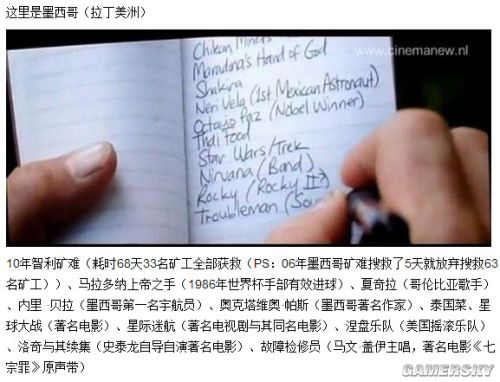 这里是墨西哥（拉丁美洲）
www.cinemanew.nl
Chilean Miners
Maradona's Hand of God
Shakira
Neri Vela (1st Mexican Astronaut)
Octavio Paz (Nobel Winner)
Thai Food
Star Wars/Trek
Nirvana (Band)
Rocky (Rocky II?)
Troubleman (Sou
10年智利矿难（耗时68天33名矿工全部获救（PS：06年墨西哥矿难搜救了5天就放弃搜救63
名矿工））、马拉多纳上帝之手（1986年世界杯手部有效进球）、夏奇拉（哥伦比亚歌手）、
内里·贝拉（墨西哥第一名宇航员）、奥克塔维奥·帕斯（墨西哥著名作家）、泰国菜、星
球大战（著名电影）、星际迷航（著名电视剧与其同名电影）、涅盘乐队（美国摇滚乐队）
、洛奇与其续集（史泰龙自导自演著名电影）、故障检修员（马文·盖伊主唱，著名电影《七
宗罪》原声带）
GAMERSKY